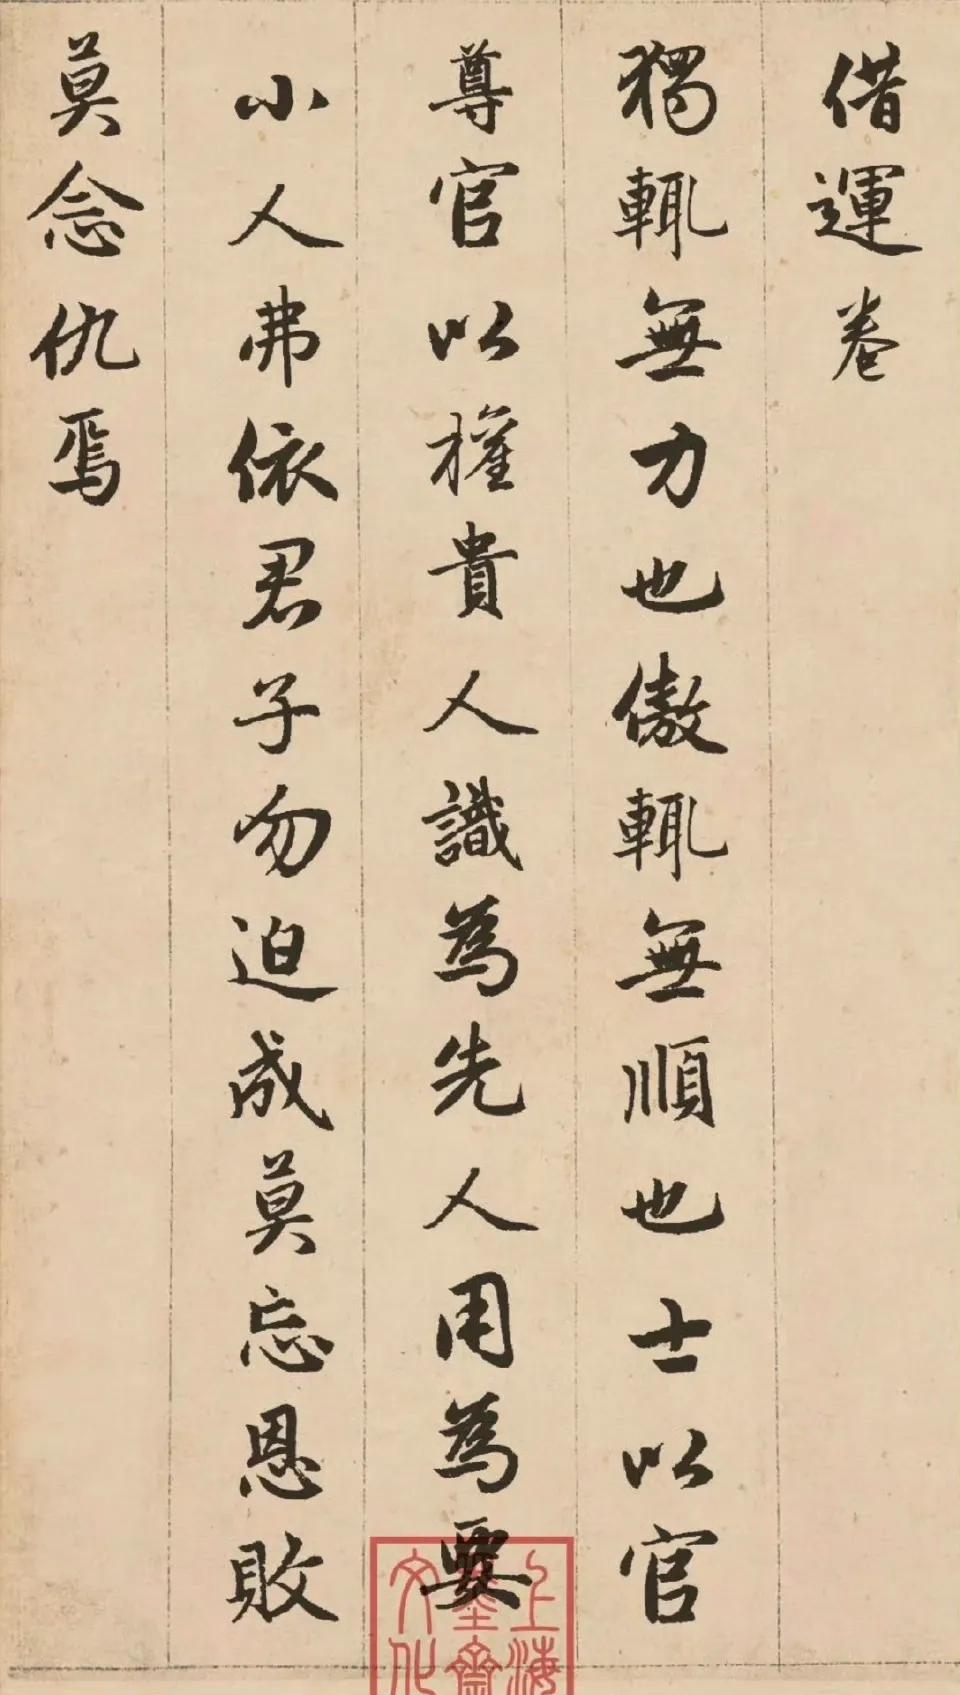 借運卷
獨輒無力也傲輒無順也士以官
尊官以權貴人識為先人用為要
小人弗依君子勿迫成莫忘恩敗
莫念仇焉
上海
墨齋
文化